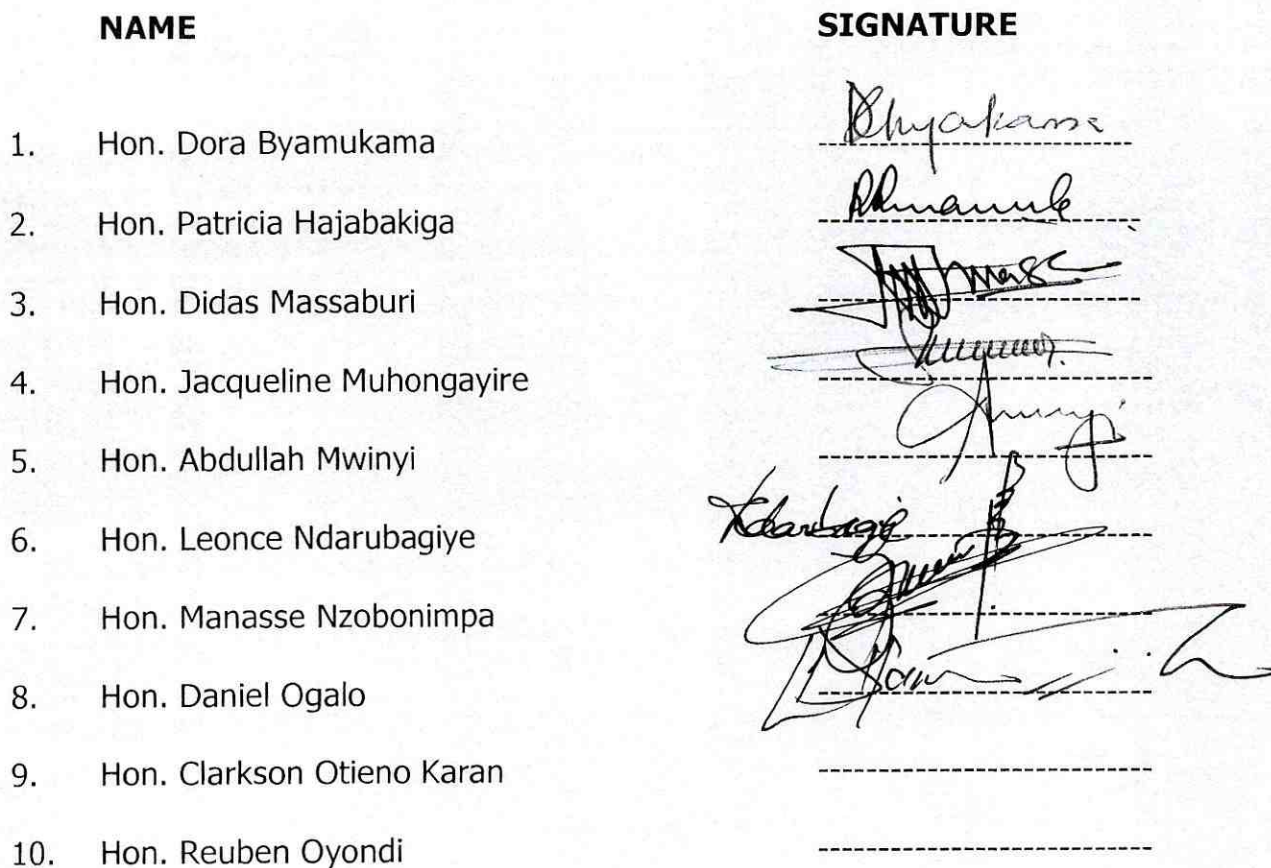 NAME SIGNATURE
1. Hon. Dora Byamukama
2. Hon. Patricia Hajabakiga
3. Hon. Didas Massaburi
4. Hon. Jacqueline Muhongayire
5. Hon. Abdullah Mwinyi
6. Hon. Leonce Ndarubagiye
7. Hon. Manasse Nzobonimpa
8. Hon. Daniel Ogalo
9. Hon. Clarkson Otieno Karan
10. Hon. Reuben Oyondi